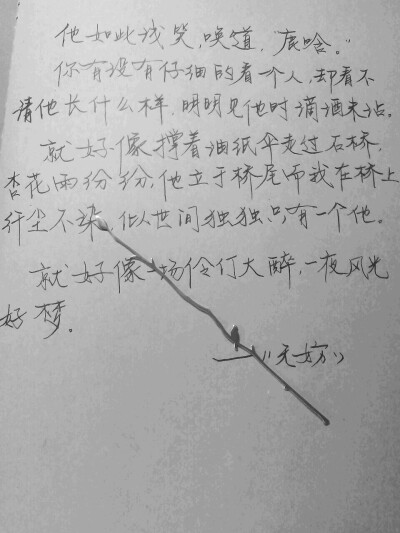 他如此浅笑，唤道，"底啥。"
你有没有仔细的看个人，却看不
清他长什么样，明明见他时滴酒未沾。
就好像撑着油纸伞走过石桥，
杏花雨纷纷，他立于桥尾而我在桥上
纤尘不染，似世间独独只有一个他。
就好像一场伶仃大醉，一夜风光
好梦。
——《无妨》